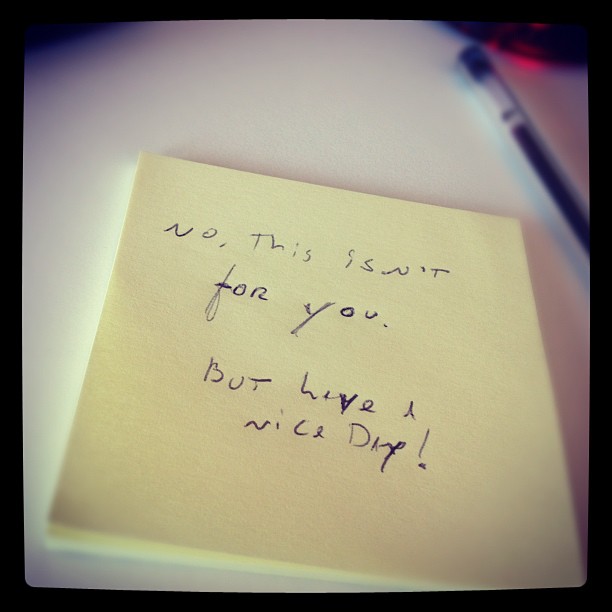 No, This isN'T
foR you.
BuT have A
nice Day!